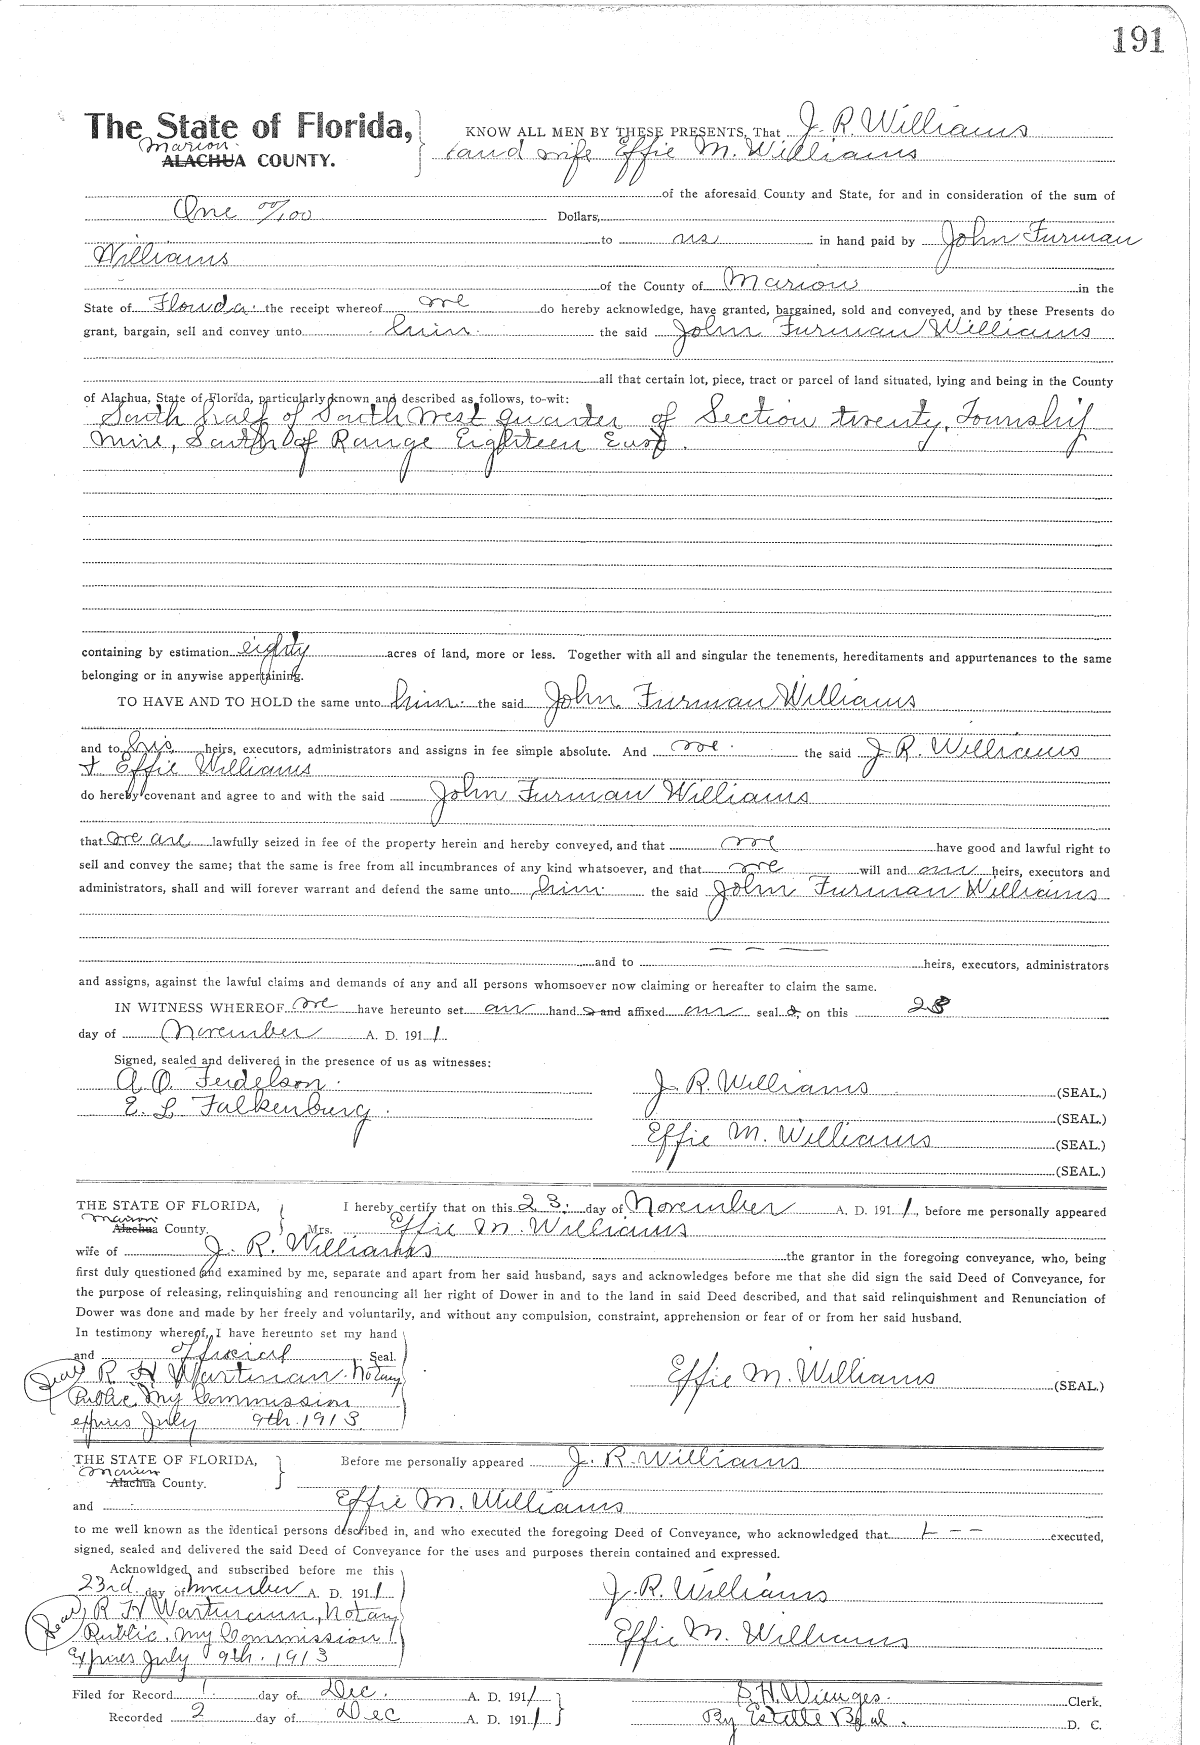 191
The State of Florida, KNOW ALL MEN BY THESE PRESENTS, That J. R. Williams
Marion
ALACHUA COUNTY. and wife Effie M. Williams
of the aforesaid County and State, for and in consideration of the sum of
One 00/100 Dollars,
to us in hand paid by John Furman
Williams
of the County of Marion in the
State of Florida the receipt whereof we do hereby acknowledge, have granted, bargained, sold and conveyed, and by these Presents do
grant, bargain, sell and convey unto him the said John Furman Williams
all that certain lot, piece, tract or parcel of land situated, lying and being in the County
of Alachua, State of Florida, particularly known and described as follows, to-wit:
South half of South West quarter of Section twenty, Township
nine, South of Range Eighteen East.
containing by estimation eighty acres of land, more or less. Together with all and singular the tenements, hereditaments and appurtenances to the same
belonging or in anywise appertaining.
TO HAVE AND TO HOLD the same unto him the said John Furman Williams
and to his heirs, executors, administrators and assigns in fee simple absolute. And we the said J. R. Williams
+ Effie Williams
do hereby covenant and agree to and with the said John Furman Williams
that we are lawfully seized in fee of the property herein and hereby conveyed, and that we have good and lawful right to
sell and convey the same; that the same is free from all incumbrances of any kind whatsoever, and that we will and our heirs, executors and
administrators, shall and will forever warrant and defend the same unto him the said John Furman Williams
and to — — — heirs, executors, administrators
and assigns, against the lawful claims and demands of any and all persons whomsoever now claiming or hereafter to claim the same.
IN WITNESS WHEREOF we have hereunto set our hand s and affixed our seal s, on this
day of November A. D. 1911
Signed, sealed and delivered in the presence of us as witnesses:
A. O. J. R. Williams (SEAL.)
E. L. Falkenburg (SEAL.)
Effie M. Williams (SEAL.)
(SEAL.)
THE STATE OF FLORIDA, I hereby certify that on this 23. day of November A. D. 1911, before me personally appeared
Marion
Alachua County. Mrs. Effie M. Williams
wife of J. R. Williams the grantor in the foregoing conveyance, who, being
first duly questioned and examined by me, separate and apart from her said husband, says and acknowledges before me that she did sign the said Deed of Conveyance, for
the purpose of releasing, relinquishing and renouncing all her right of Dower in and to the land in said Deed described, and that said relinquishment and Renunciation of
Dower was done and made by her freely and voluntarily, and without any compulsion, constraint, apprehension or fear of or from her said husband.
In testimony whereof, I have hereunto set my hand
and official Seal.
Seal R H Wartman. Notary Effie M. Williams (SEAL.)
Public. My Commission
expires July 9th. 1913.
THE STATE OF FLORIDA, Before me personally appeared J. R. Williams
Marion
Alachua County.
and Effie M. Williams
to me well known as the identical persons described in, and who executed the foregoing Deed of Conveyance, who acknowledged that executed,
signed, sealed and delivered the said Deed of Conveyance for the uses and purposes therein contained and expressed.
Acknowldged and subscribed before me this
23rd. day of November A. D. 1911 J. R. Williams
Seal R H Wartmann, Notary
Public. My Commission Effie M. Williams
Expires July 9th. 1913
Filed for Record 1 day of Dec. A. D. 1911 S. H. Wienges. Clerk.
Recorded 2 day of Dec A. D. 1911 By Estelle D. C.